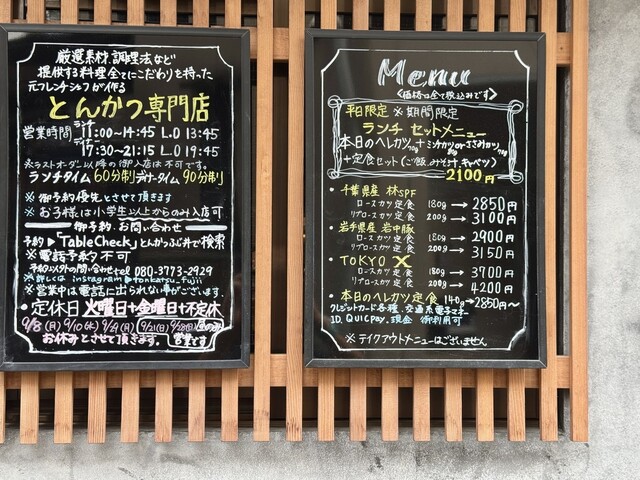 厳選素材、調理法など
提供する料理全てにこだわりを持った
元フレンチシェフが作る
とんかつ専門店
ランチ
営業時間 11:00~14:45 L.O 13:45
ディナー
17:30~21:15 L.O 19:45
※ラストオーダー以降の御入店は不可です。
ランチタイム 60分制 ディナータイム 90分制
※御予約優先とさせて頂きます
※お子様は小学生以上からのみ入店可
御予約、お問い合わせ
予約▶「TableCheck」とんかつふじ井で検索
※電話予約不可
予約以外の問い合せtel 080-3773-2929
※詳しくは instagram@tonkatsu_fujii
※営業中は電話に出られない事がございます。
・定休日 火曜日+金曜日+不定休
9/8(月) 9/10(水)
お休みとさせて頂きます。 営業です
Menu
<価格は全て税込みです>
平日限定 ※期間限定
ランチ セットメニュー
本日のヘレカツ+ミンチカツorささみカツ
+定食セット(ご飯、みそ汁、キャベツ)
2100円
・千葉県産 林SPF
ロースカツ定食 180g→2850円
リブロースカツ定食 200g→3100円
・岩手県産 岩中豚
ロースカツ定食 180g→2900円
リブロースカツ定食 200g→3150円
・TOKYO X
ロースカツ定食 180g→3700円
リブロースカツ定食 200g→4200円
・本日のヘレカツ定食 140g→2850円~
クレジットカード各種、交通系電子マネー
ID、QUICPay、現金 御利用可
※テイクアウトメニューはございません